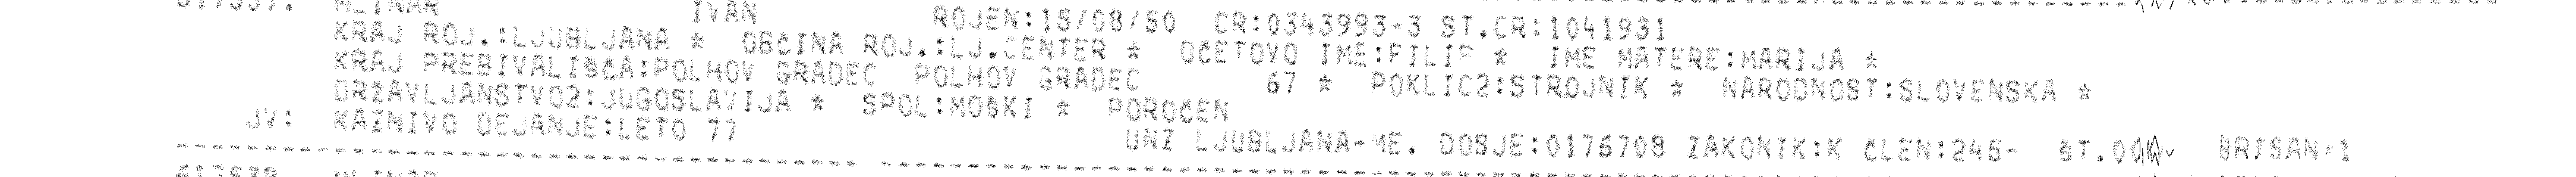 617537. MLINAR IVAN ROJEN:15/08/50 CR:0343993-3 ST.CR:1041931
KRAJ ROJ.:LJUBLJANA * OBČINA ROJ.:LJ.CENTER * OČETOVO IME:FILIP * IME MATERE:MARIJA *
KRAJ PREBIVALIŠČA:POLHOV GRADEC POLHOV GRADEC 67 * POKLIC2:STROJNIK * NARODNOST:SLOVENSKA *
DRŽAVLJANSTVO2:JUGOSLAVIJA * SPOL:MOŠKI * POROČEN
JV: KAZNIVO DEJANJE:LETO 77 UNZ LJUBLJANA-ME. DOSJE:0176708 ZAKONIK:K ČLEN:246- ŠT. BRISAN=1